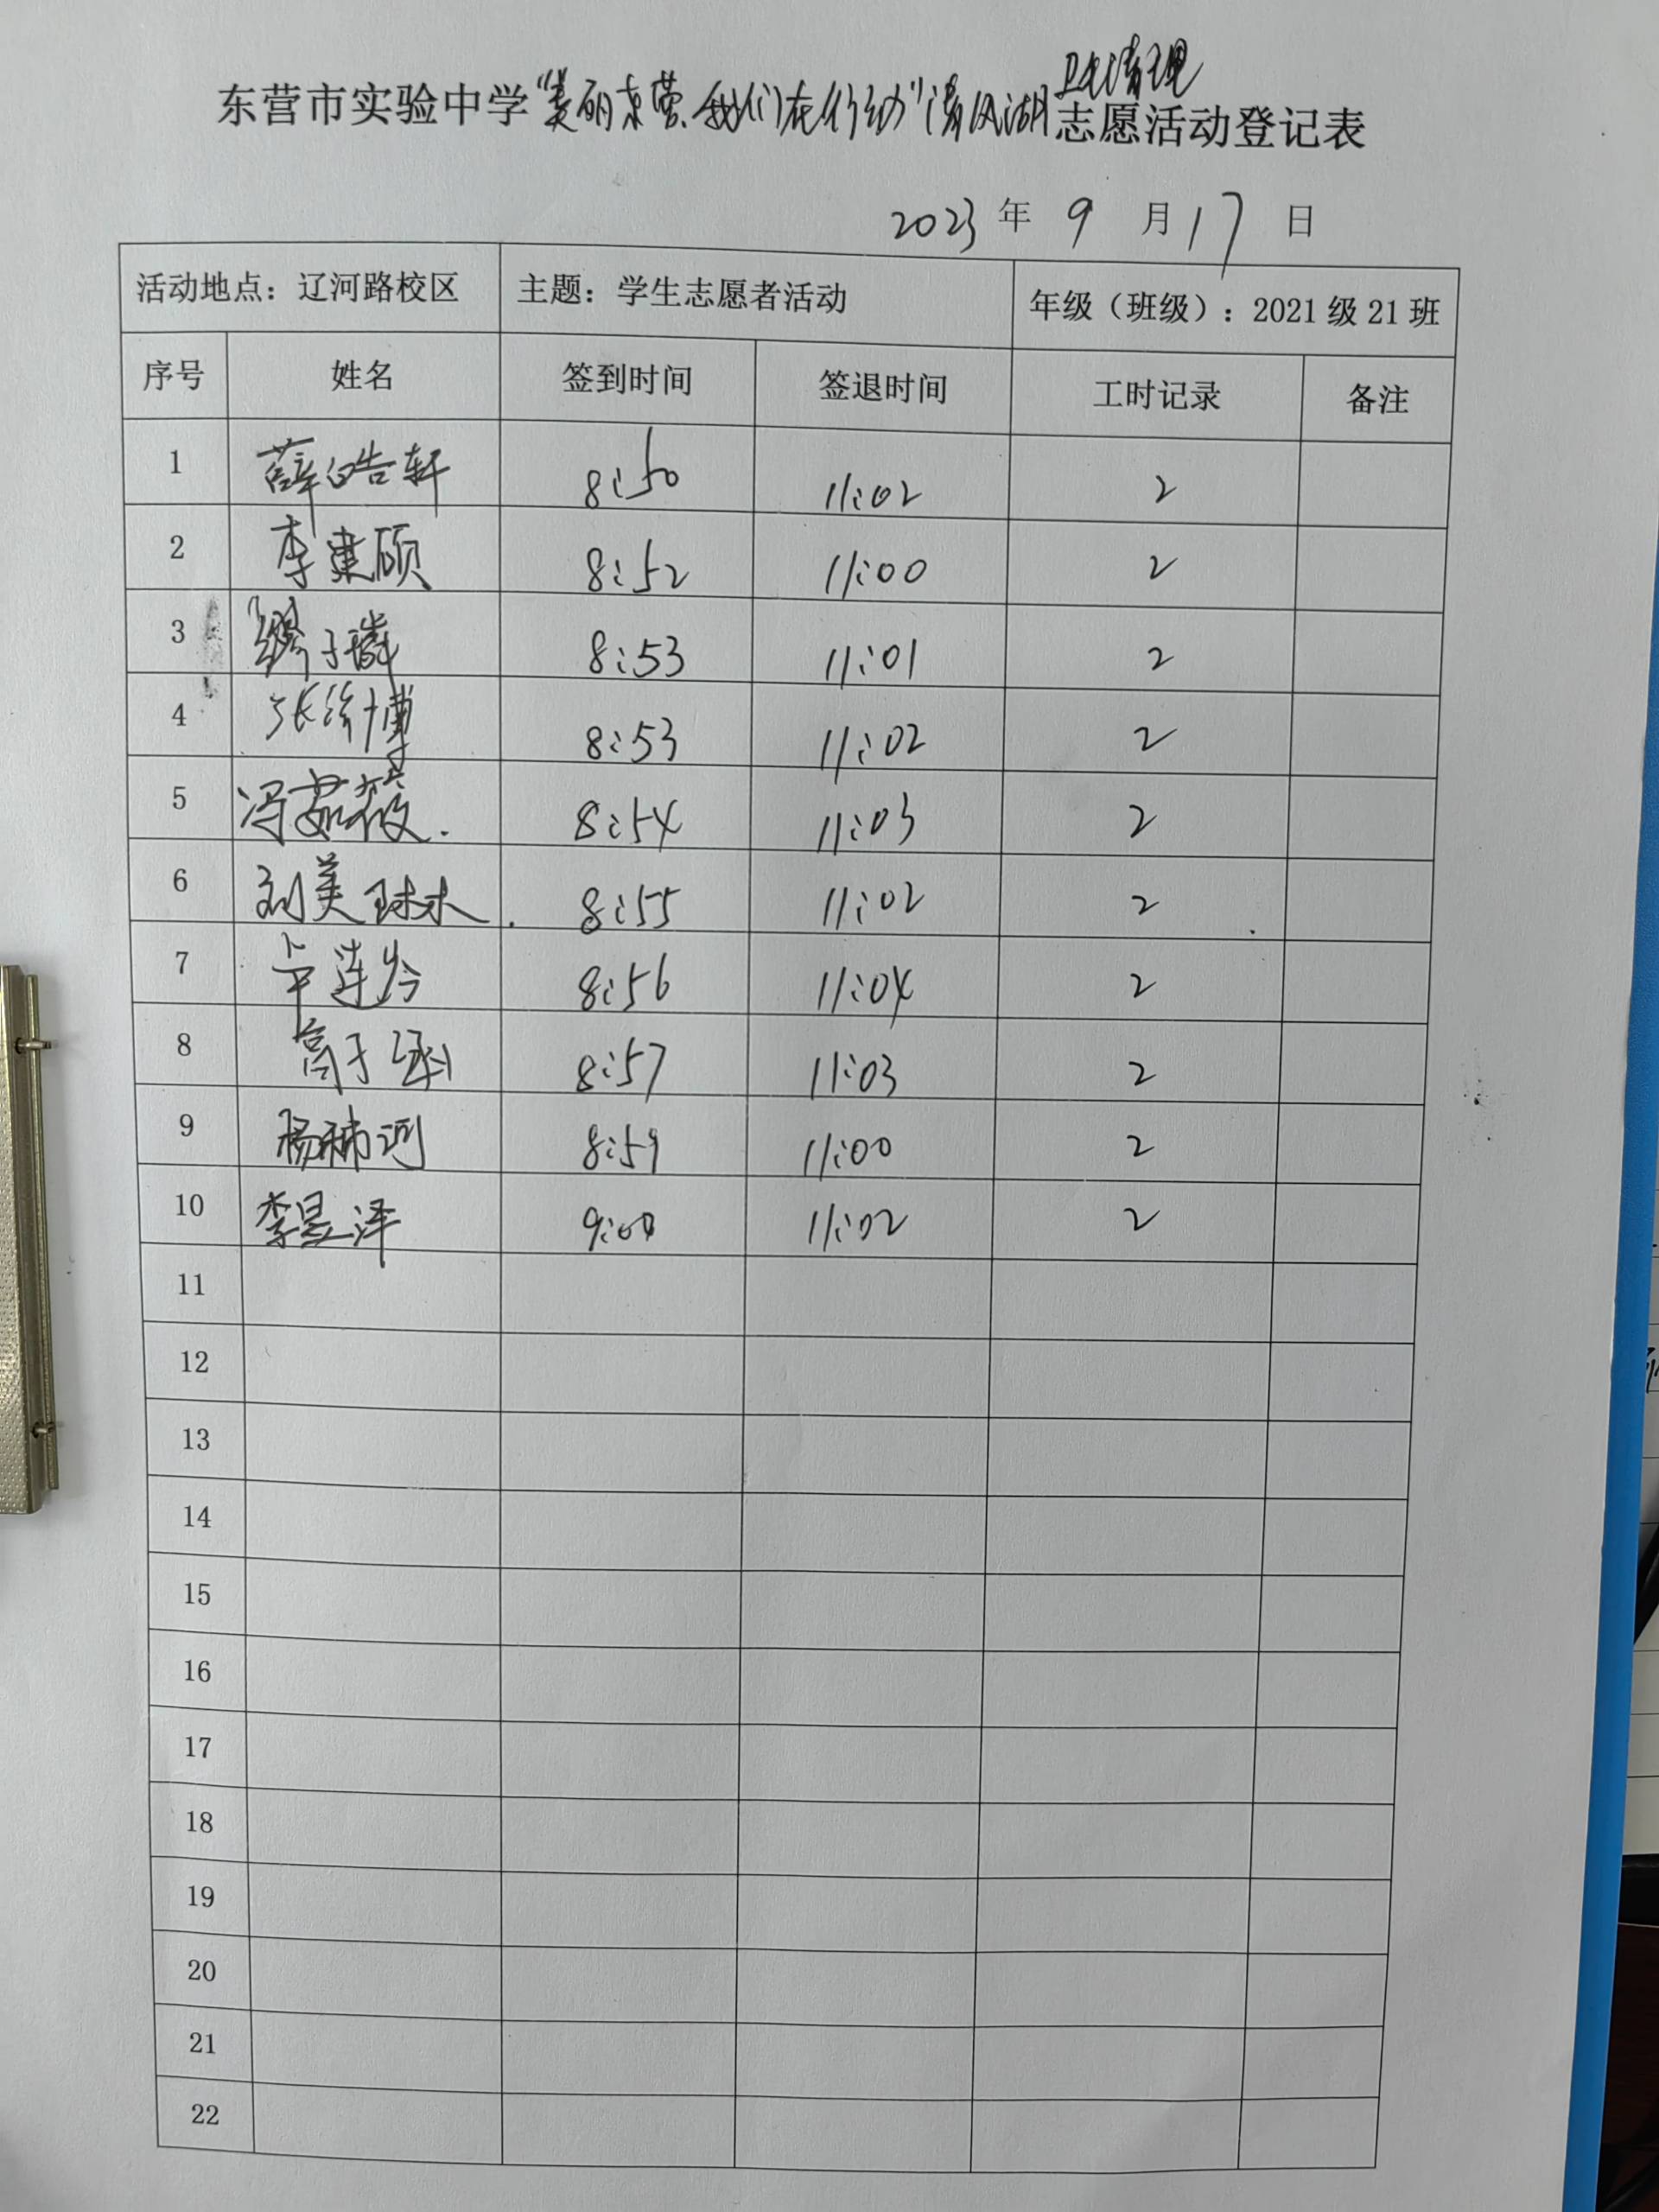 东营市实验中学"美丽东营、我们在行动"清风湖卫生清理志愿活动登记表
2023 年 9 月 17 日
活动地点：辽河路校区 主题：学生志愿者活动 年级（班级）：2021 级 21 班
序号 姓名 签到时间 签退时间 工时记录 备注
1 薛皓轩 8:50 11:02 2
2 李建硕 8:52 11:00 2
3 缪子麟 8:53 11:01 2
4 张 博 8:53 11:02 2
5 冯茹筱. 8:54 11:03 2
6 刘美 8:55 11:02 2
7 连 8:56 11:04 2
8 高于涵 8:57 11:03 2
9 杨 8:59 11:00 2
10 李昱泽 9:00 11:02 2
11
12
13
14
15
16
17
18
19
20
21
22